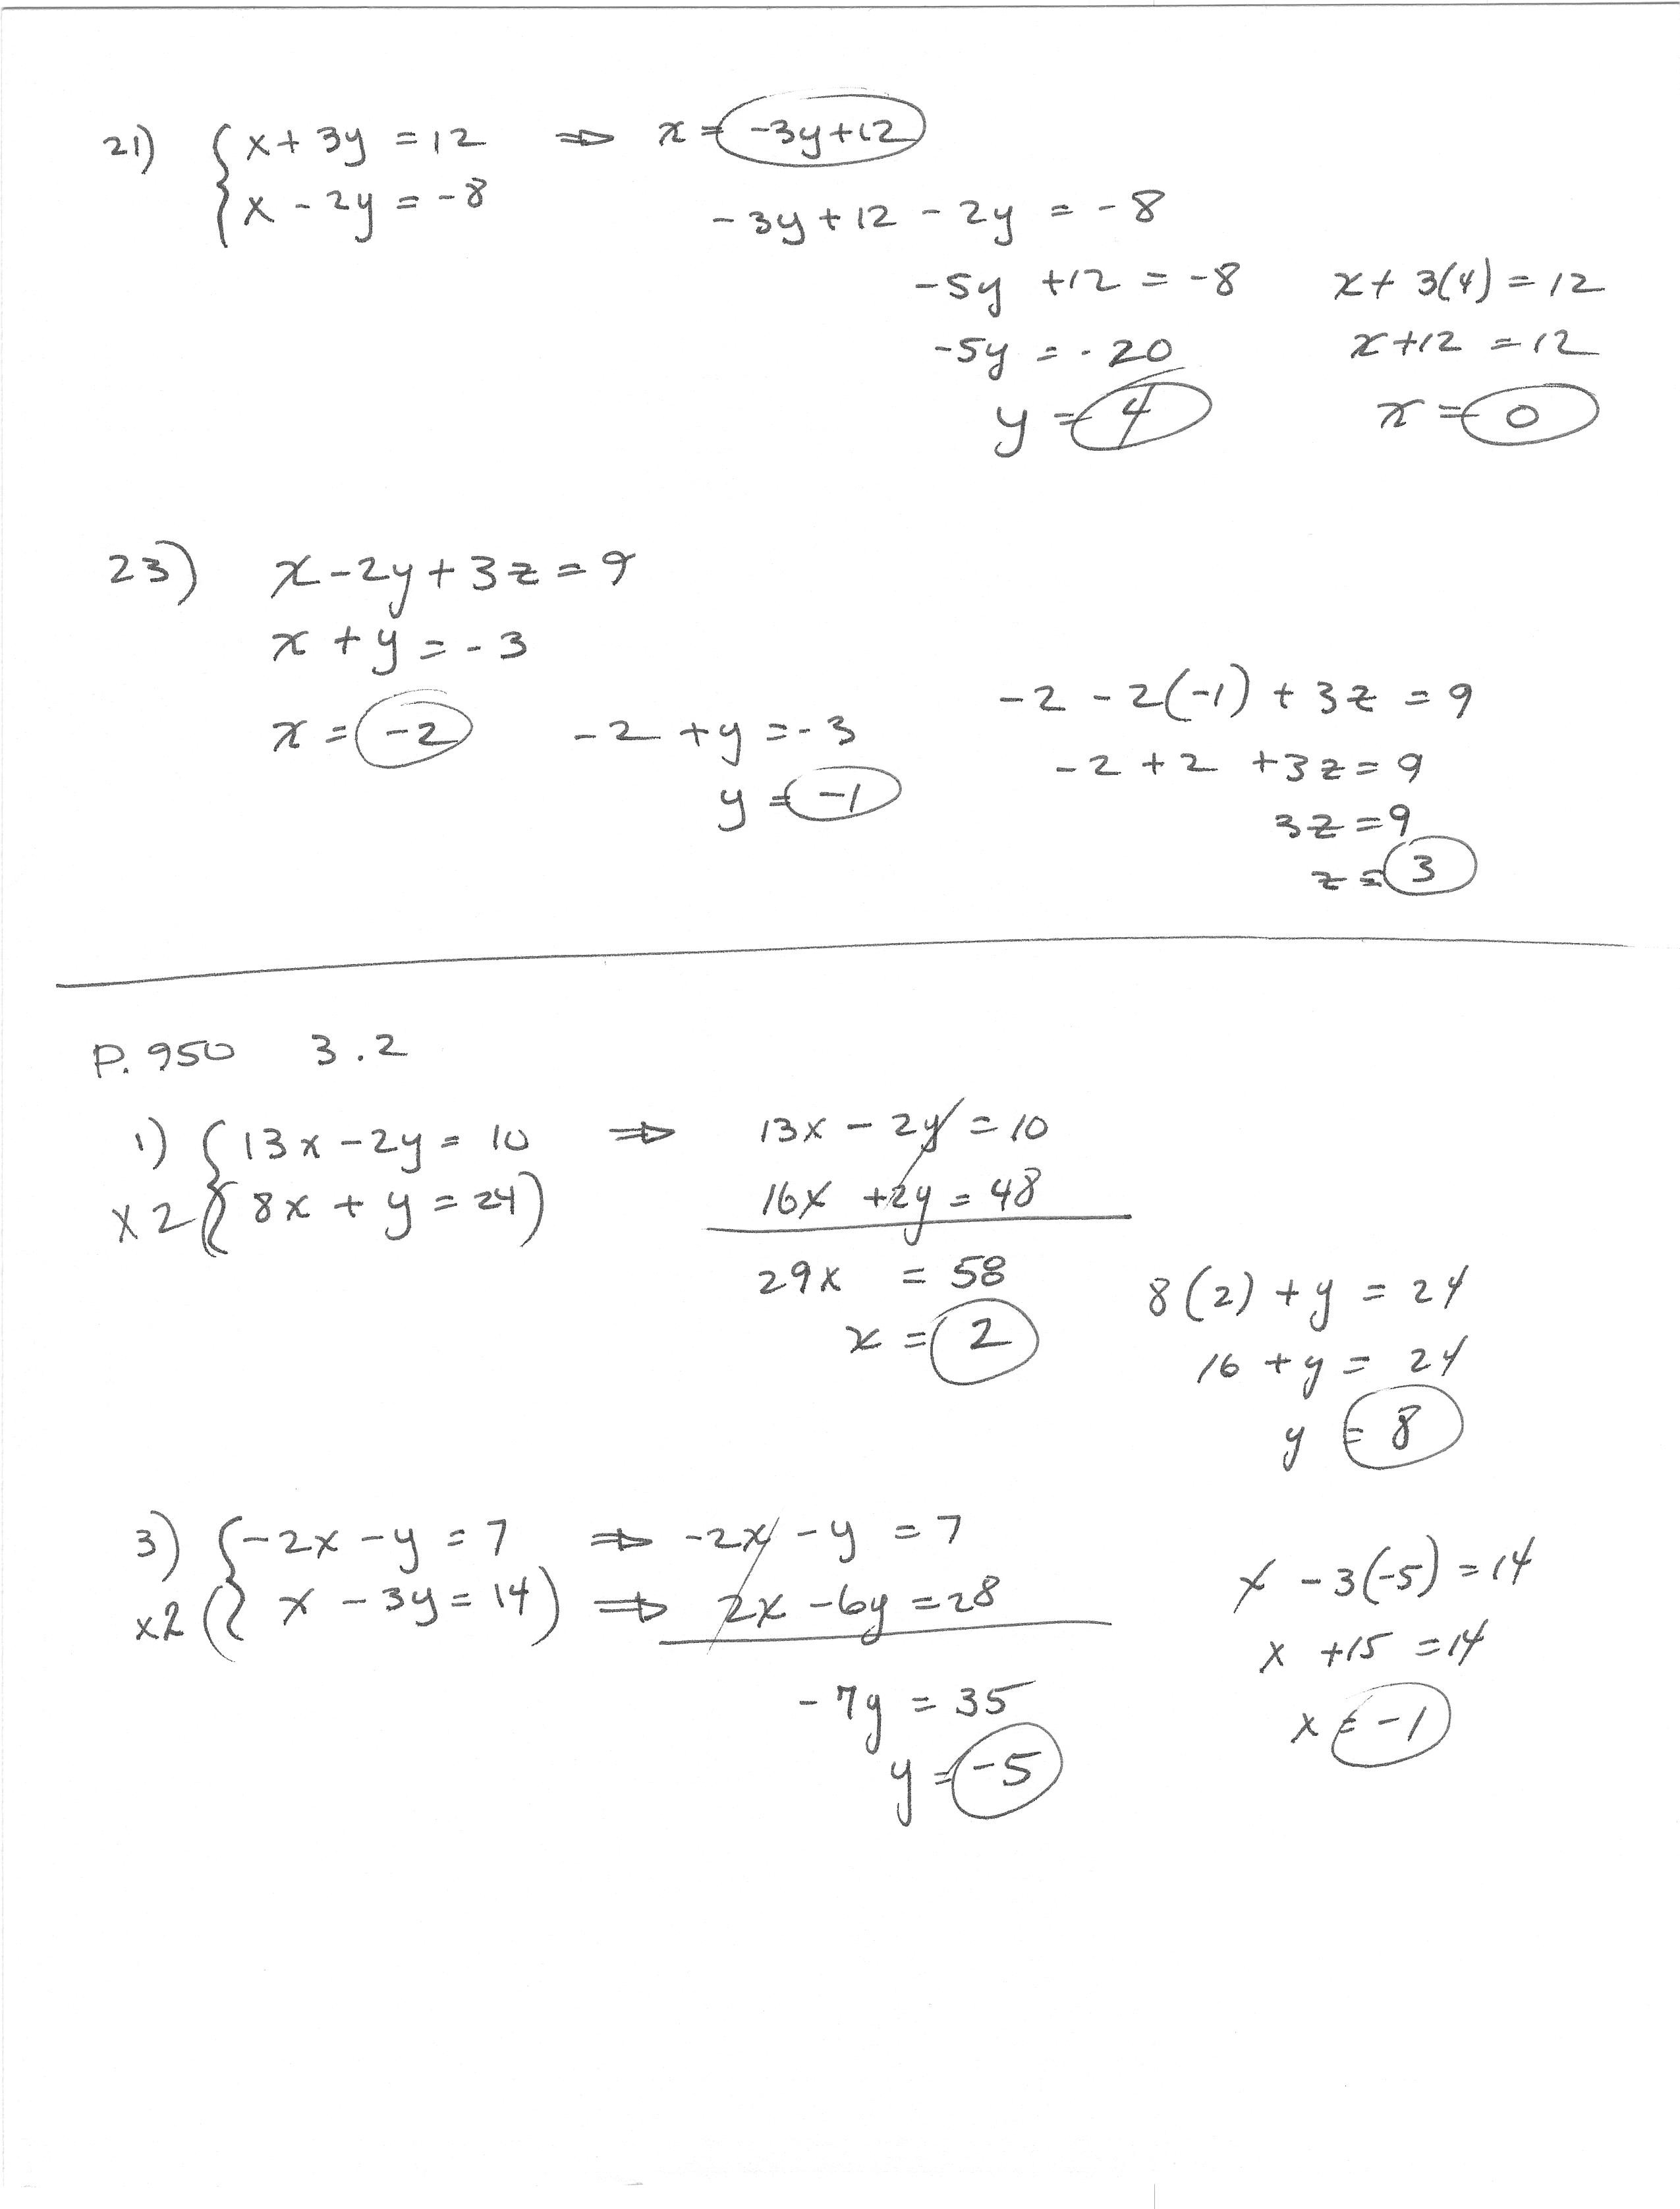 21) { x + 3y = 12 ⇒ x = -3y+12
x - 2y = -8
-3y + 12 - 2y = -8
-5y + 12 = -8
-5y = -20
y = 4
x + 3(4) = 12
x + 12 = 12
x = 0
23) x - 2y + 3z = 9
x + y = -3
x = -2
-2 + y = -3
y = -1
-2 - 2(-1) + 3z = 9
-2 + 2 + 3z = 9
3z = 9
z = 3
P. 950 3.2
1) { 13x - 2y = 10 ⇒ 13x - 2y = 10
x2 ( 8x + y = 24) 16x + 2y = 48
29x = 58
x = 2
8(2) + y = 24
16 + y = 24
y = 8
3) { -2x - y = 7 ⇒ -2x - y = 7
x2 ( x - 3y = 14) ⇒ 2x - 6y = 28
-7y = 35
y = -5
x - 3(-5) = 14
x + 15 = 14
x = -1